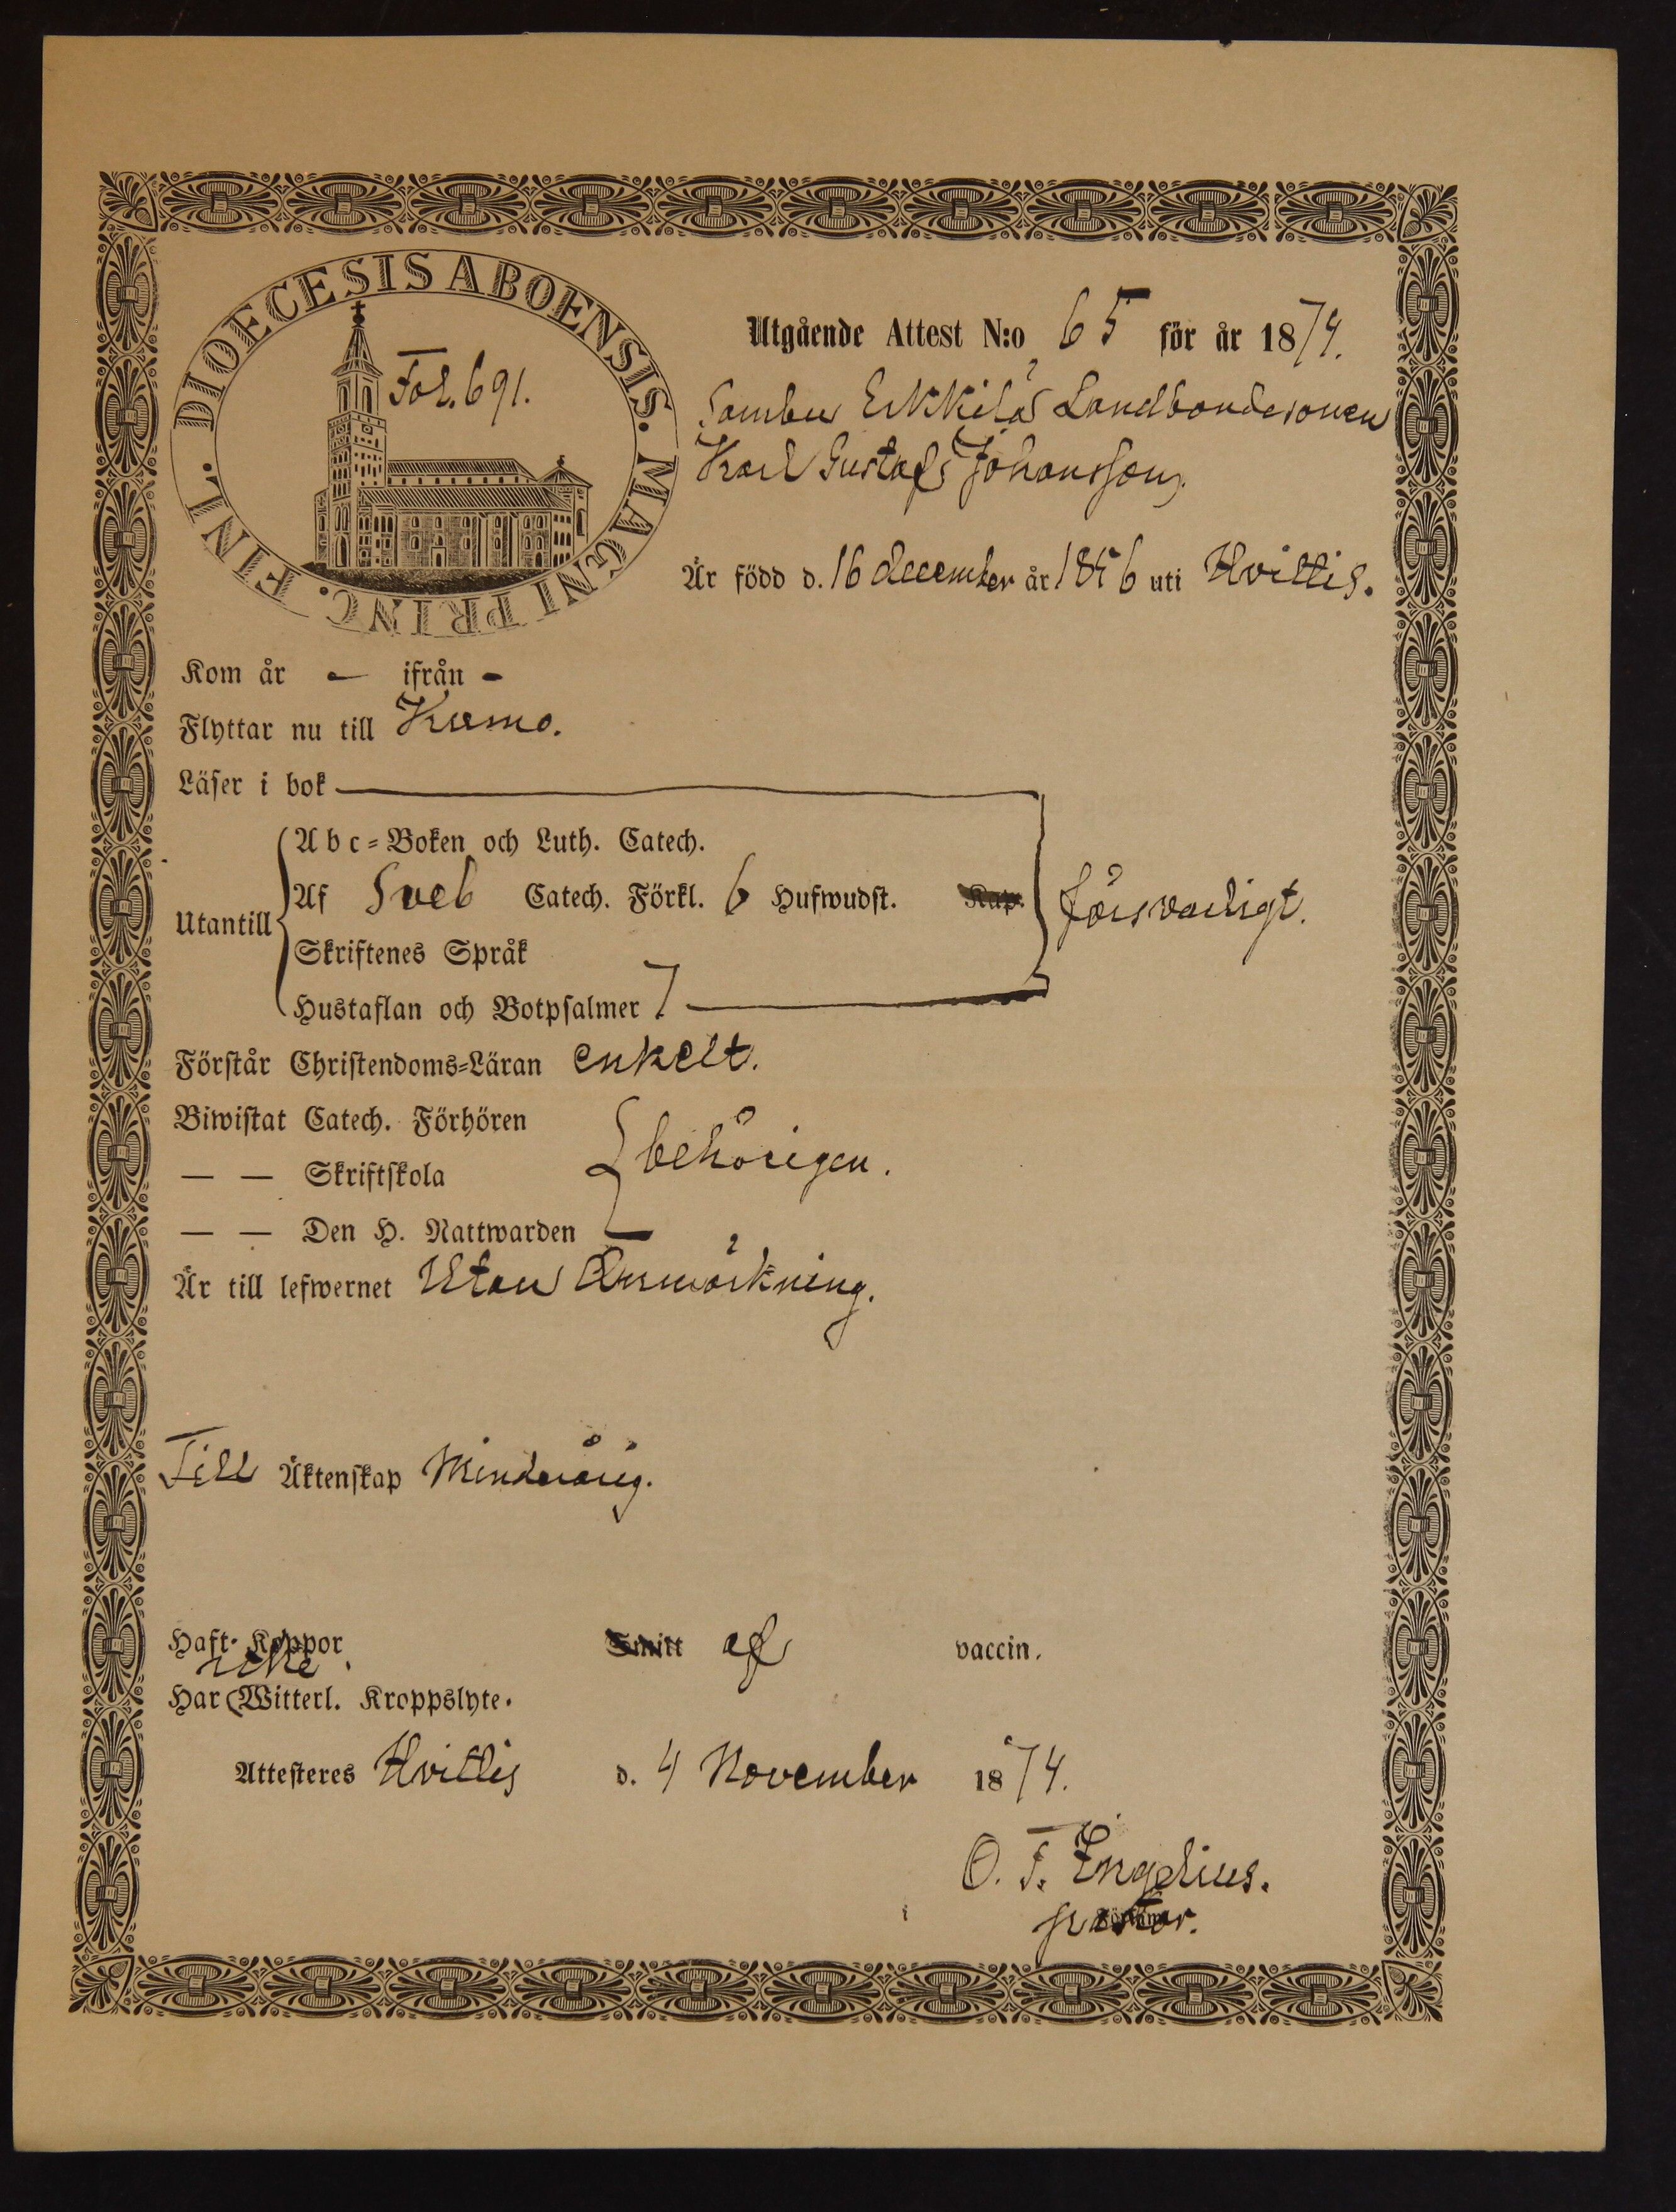 DIOECESIS ABOENSIS. MAGNI PRINC. FINL.
Fol. 691.
Utgående Attest N:o 65 för år 1874.
Sambu Erkkilä Landbondesonen
Karl Gustaf Johansson,
Är född d. 16 december år 1856 uti Hvittis.
Kom år – ifrån –
Flyttar nu till Kumo.
Läser i bok
Abc-Boken och Luth. Catech.
Utantill
Af Sveb Catech. Förkl. 6 Hufwudst. Kap.
försvarligt.
Skriftenes Språk
Hustaflan och Botpsalmer 7
Förstår Christendoms-Läran enkelt.
Biwistat Catech. Förhören
— — Skriftskola
behörigen.
— — Den H. Nattwarden
Är till lefwernet Utan Anmärkning.
Till Äktenskap Minderårig.
Haft Koppor Smitt af vaccin.
icke
Har Witterl. Kroppslyte.
Attesteres Hvittis d. 4 November 1874.
O. F. Engelius.
pastor.